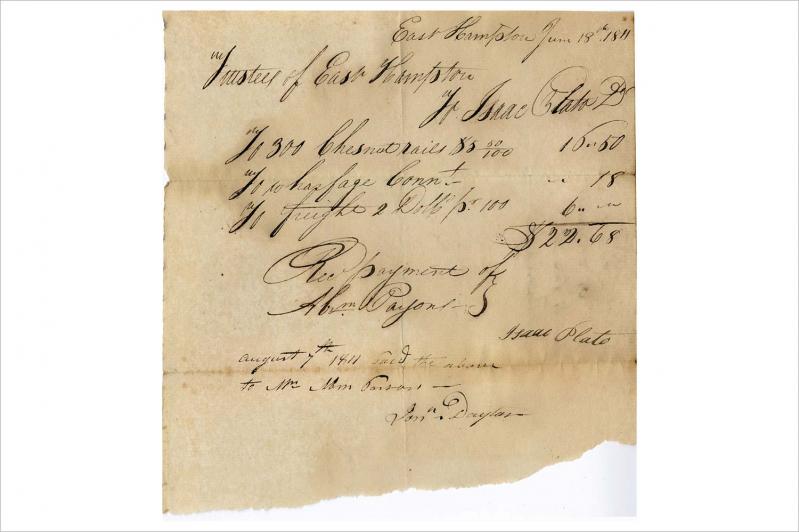 East Hampton June 18th 1811
Trustees of East Hampton
To Isaac Plato Dr
To 300 Chesnut rails $5 50/100 16 " 50
To wharfage Connt " " 18
To freight 2 Dolls pr 100 6 " "
$22.68
Recd payment of
Abm Parsons
Isaac Plato
august 7th 1811 paid the above
to Mr Abm Parsons
Jona Dayton